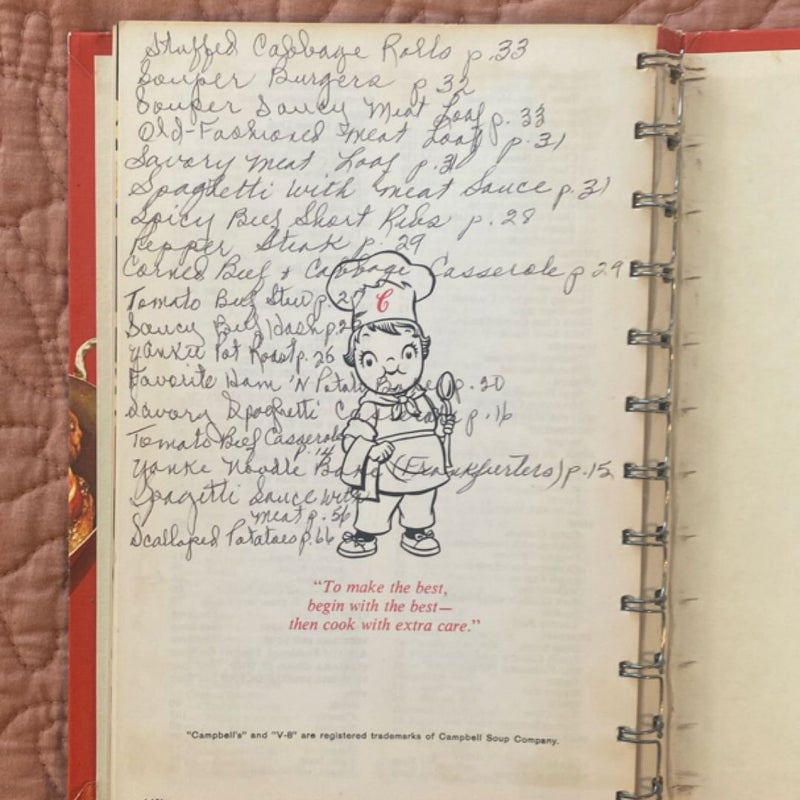 Stuffed Cabbage Rolls p. 33
Souper Burgers p 32
Souper Saucy Meat Loaf p. 33
Old-Fashioned Meat Loaf p. 31
Savory Meat Loaf p. 31
Spaghetti With Meat Sauce p. 31
Spicy Beef Short Ribs p. 28
Pepper Steak p. 29
Corned Beef + Cabbage Casserole p 29
C
Tomato Beef Stew p.
Saucy Beef Hash p.
Yankee Pot Roast p. 26
Favorite Ham 'N Potato Bake p. 20
Savory Spaghetti Casserole p. 16
Tomato Beef Casserole
p. 14
Yanke Noodle Bake (Frankfurters) p. 15
Spagetti Sauce with
meat p. 56
Scalloped Potatoes p. 66
“To make the best,
begin with the best—
then cook with extra care.”
"Campbell's" and "V-8" are registered trademarks of Campbell Soup Company.